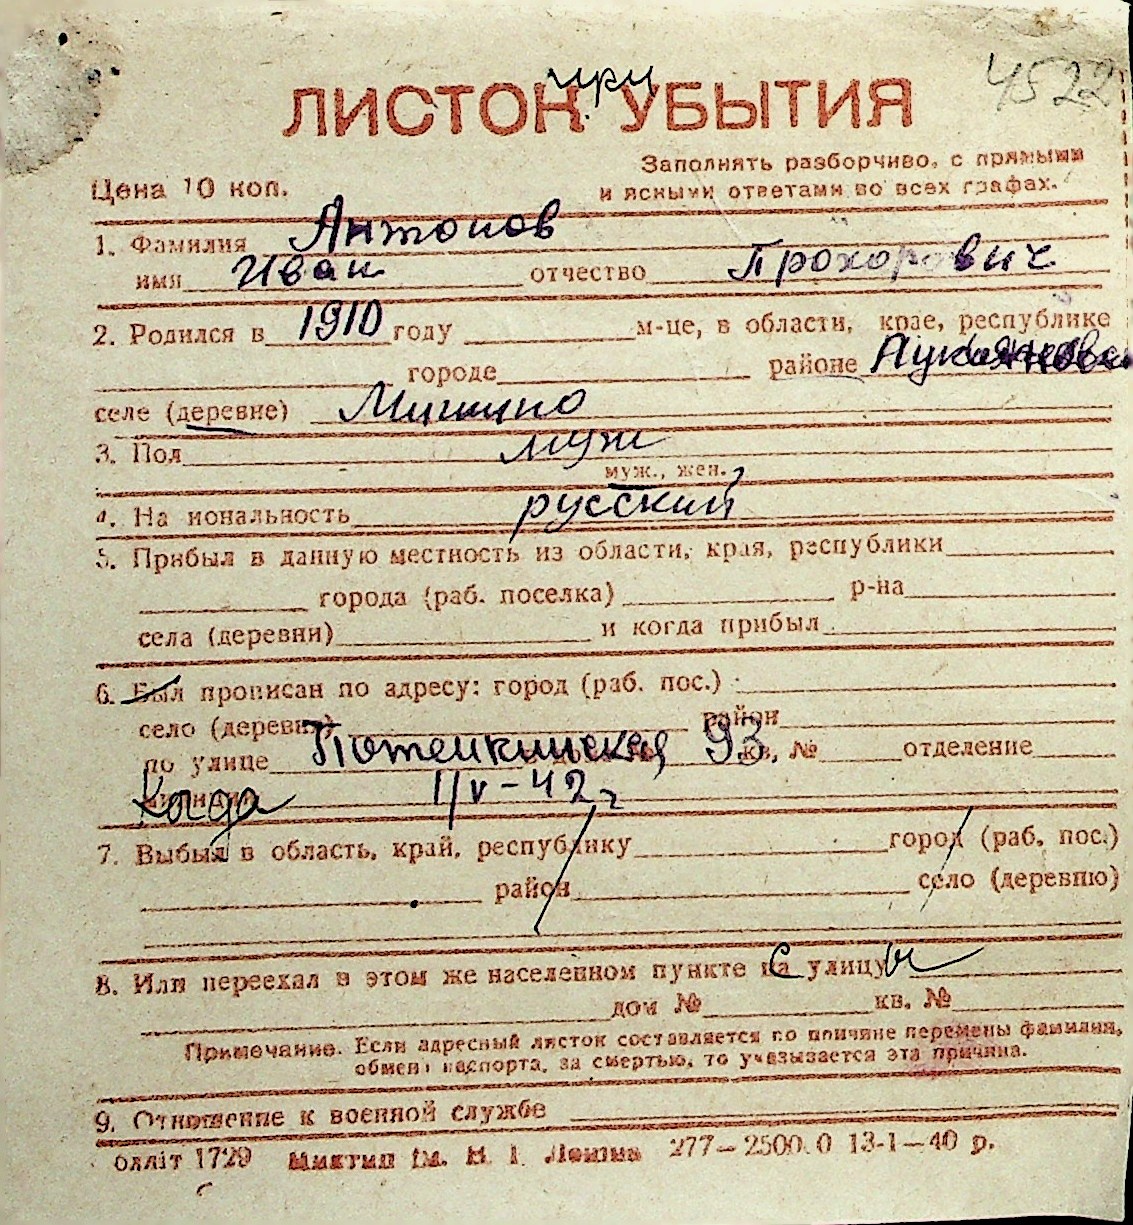 4522
при
ЛИСТОК УБЫТИЯ
Заполнять разборчиво, с прямыми
Цена 10 коп.
и ясными ответами во всех графах.
1. Фамилия Антонов
имя Иван отчество Прохорович
2. Родился в 1910 году м-це, в области, крае, республике
городе районе
селе (деревне) Мишино
3. Пол муж
муж., жен.
4. На иональность русский
5. Прибыл в данную местность из области, края, республики
города (раб. поселка) р-на
села (деревни) и когда прибыл
6. Был прописан по адресу: город (раб. пос.)
село (деревня) район
по улице Потемкинская 93 кв. № отделение
Когда 1/V-42 г
7. Выбыл в область, край, республику город (раб. пос.)
район село (деревню)
8. Или переехал в этом же населенном пункте с улицы
дом № кв. №
Примечание. Если адресный листок составляется по причине перемены фамилии,
обмена паспорта, за смертью, то указывается эта причина.
9. Отношение к военной службе
оллiт 1729 Миктип iм. В. I. Ленiна 277—2500.0 13-1—40 р.